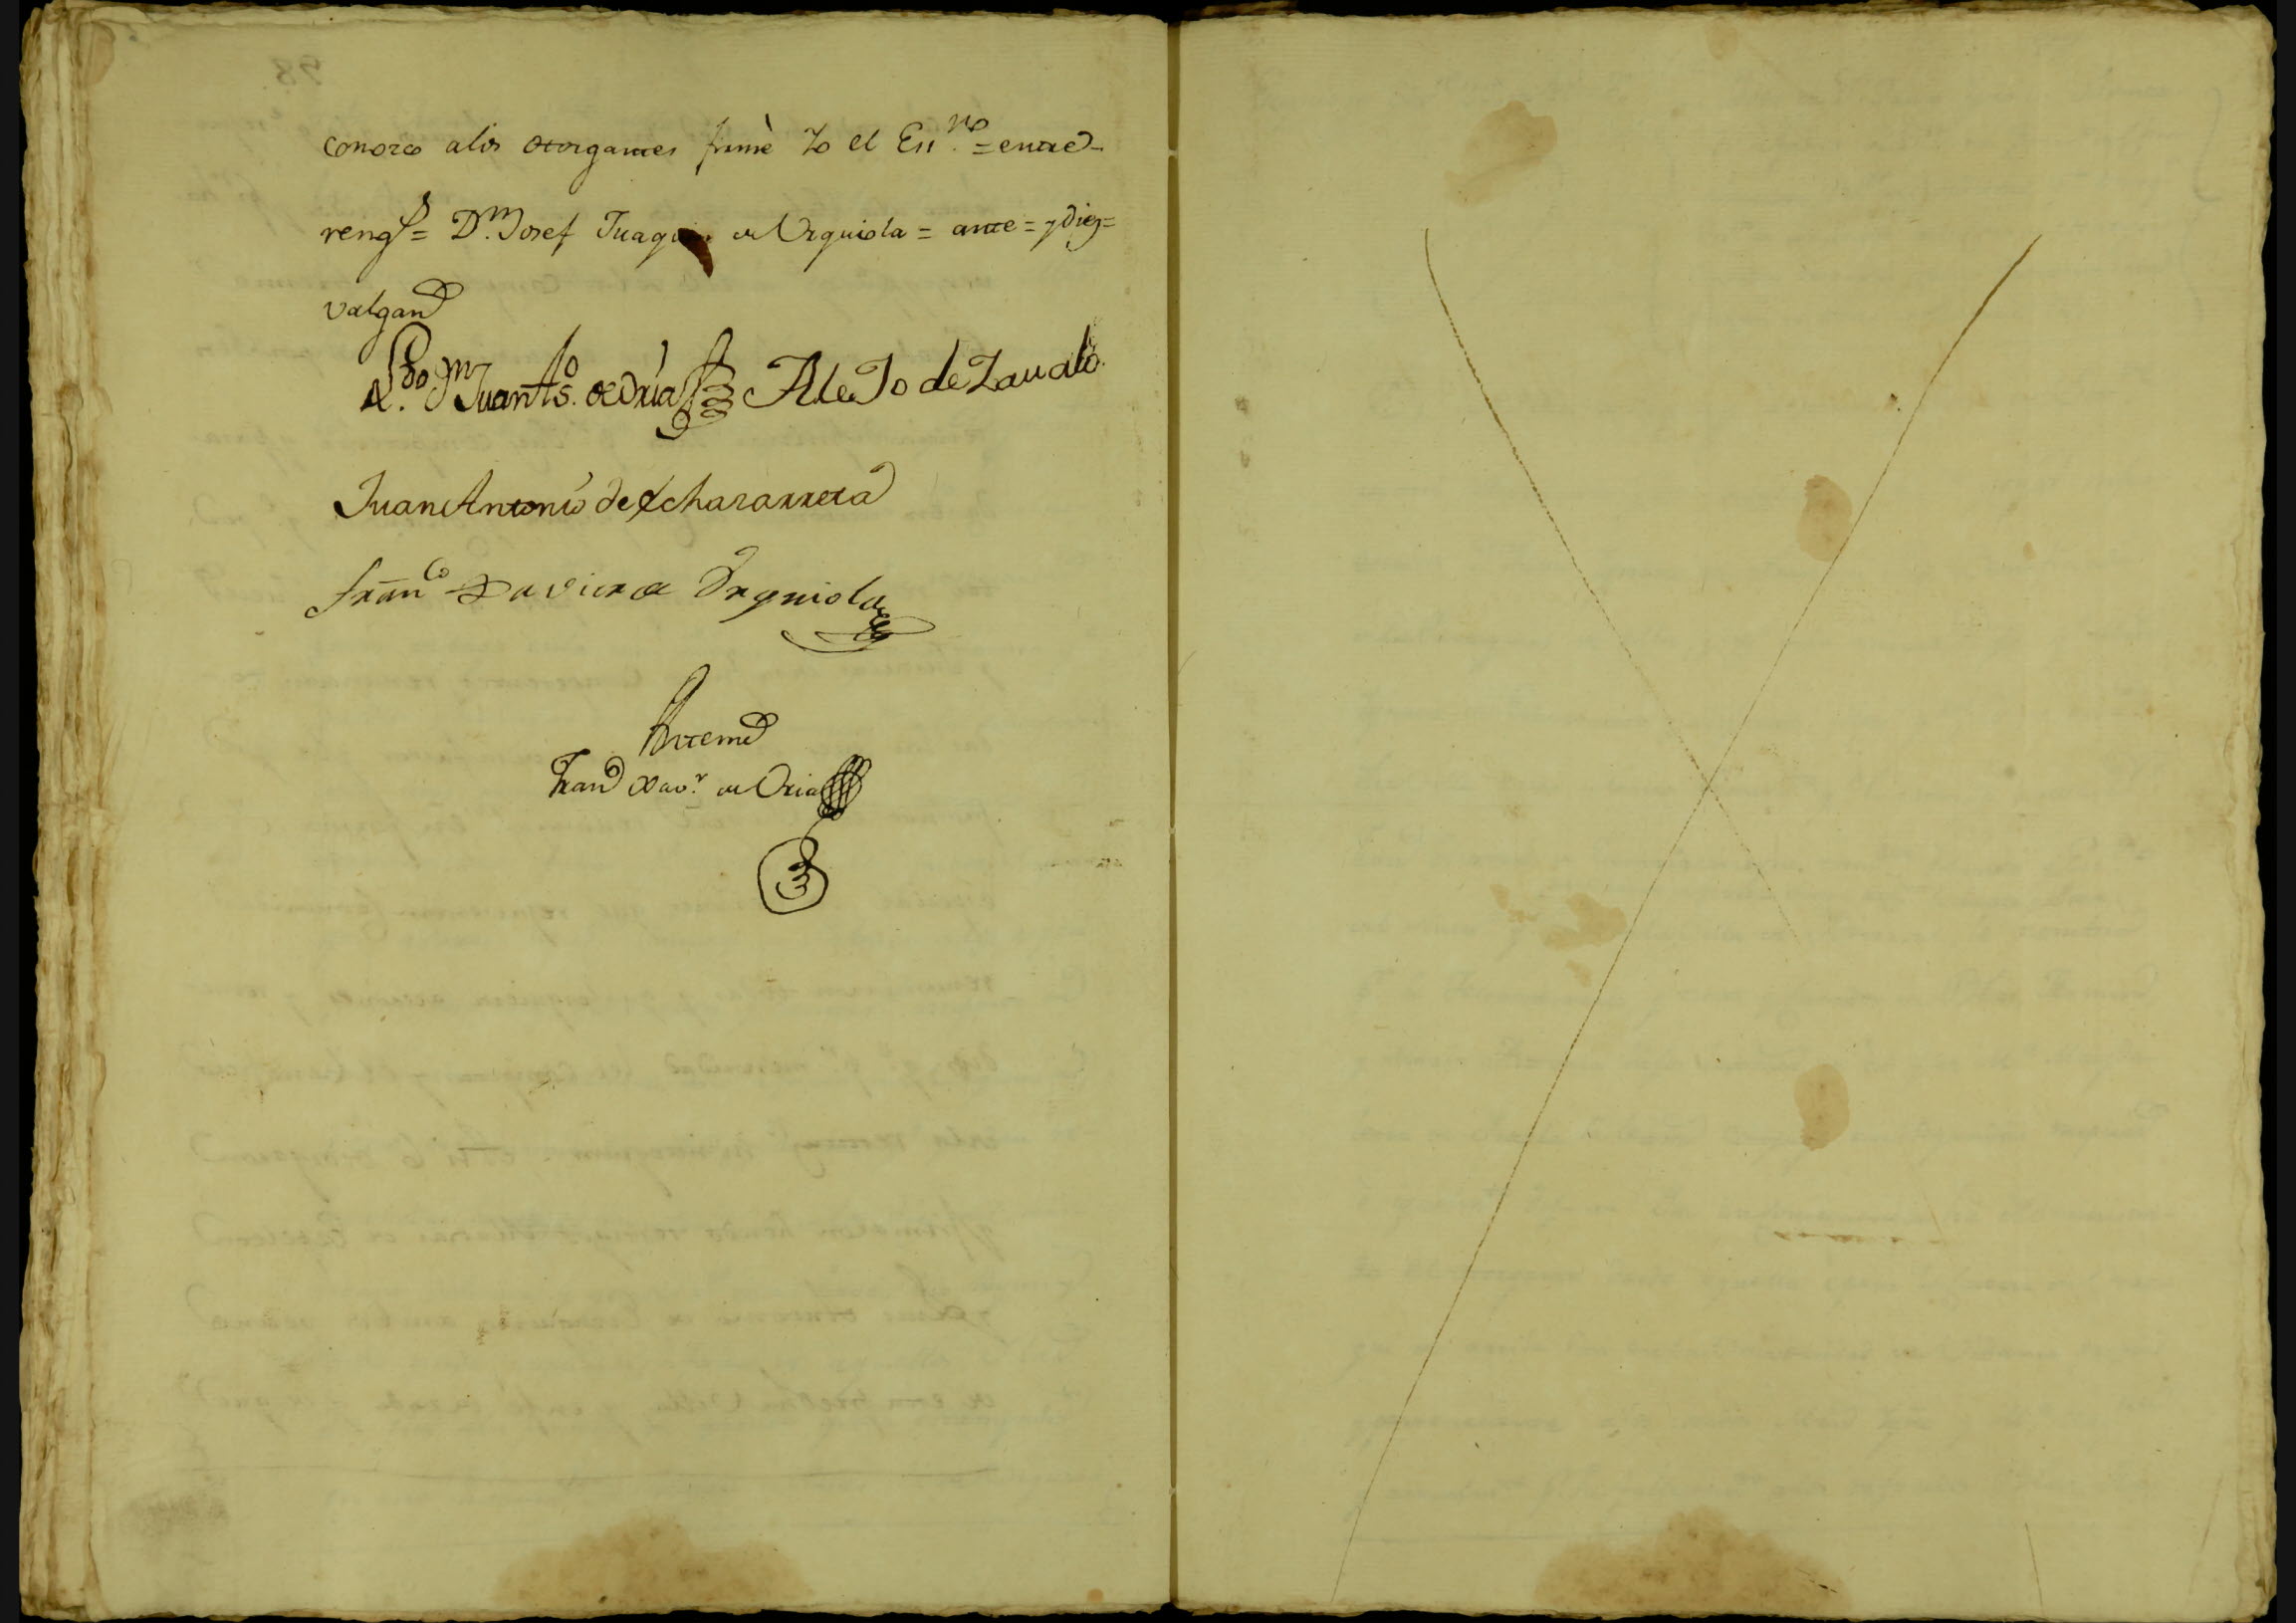 conozco alos otorgantes firmè Yo el Ess.no = entre
reng.s = D.n Josef Juaquin de Urquiola = ante = y diez =
valgan
L.do D.n Juan Ant.o de Oria Alejo de Zavalo
Juan Antonio de Echazarreta
Fran.co Xavier de Urquiola
Antemi
Fran.co Xav.r de Oria